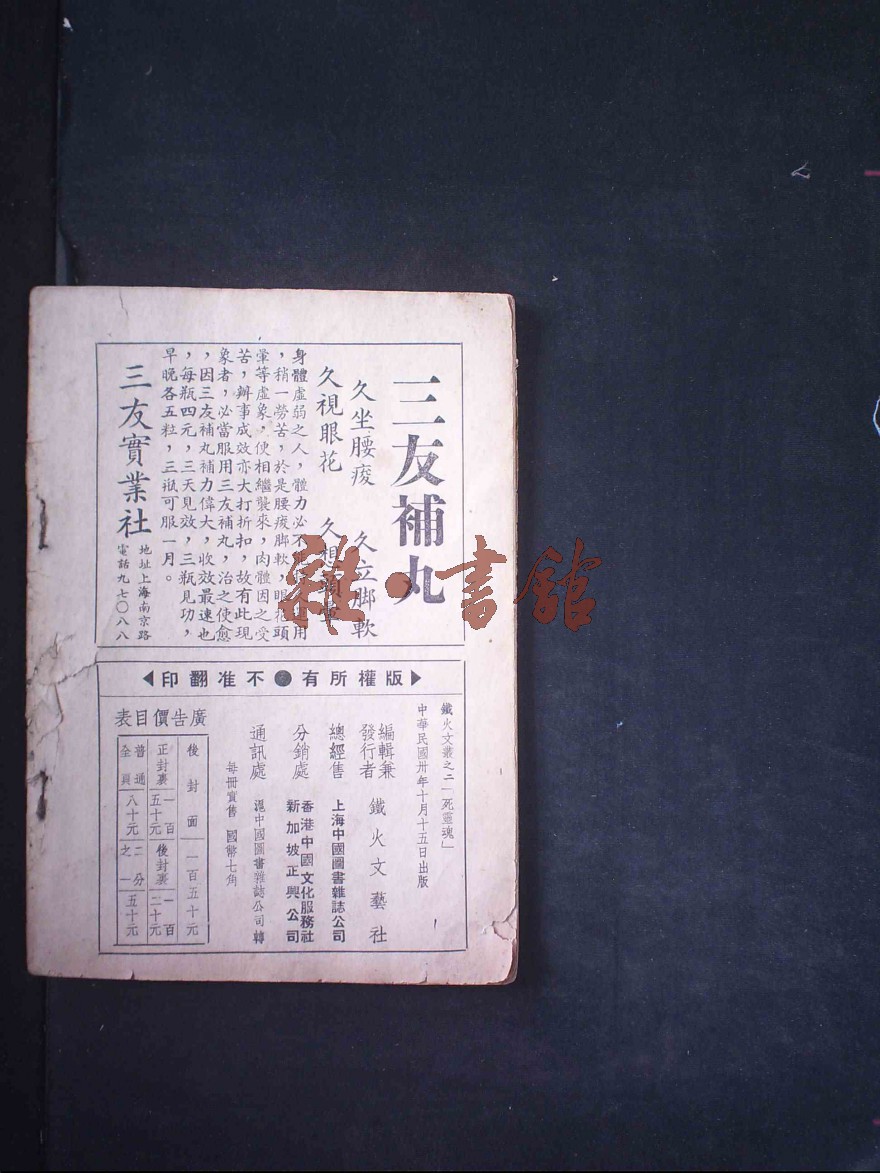 三友補丸
久坐腰痠　久立脚軟
久視眼花　久想頭暈
身體虛弱之人，體力必不
用
，稍一勞苦，於是腰痠脚軟，眼花頭
暈等虛象，便相繼襲來，肉體因之受
苦，辦事成效亦大打折扣，故有此現
象者，必當服用三友補丸，治之使愈
，因三友補丸補力偉大，收效最速也
，每瓶四元，三天見效，三瓶見功，
早晚各五粒，三瓶可服一月。
三友實業社
地址上海南京路
電話九七〇八八
雜·書館
版權所有●不准翻印
鐵火文叢之二「死靈魂」
中華民國卅年十月十五日出版
編輯兼發行者　鐵火文藝社
總經售　上海中國圖書雜誌公司
分銷處　香港中國文化服務社
新加坡正興公司
通訊處　滬中國圖書雜誌公司轉
每冊實售　國幣七角
廣告價目表
後封面　一百五十元
正封裏　一百五十元　後封裏　一百二十元
普通全頁　八十元　二分之一　五十元